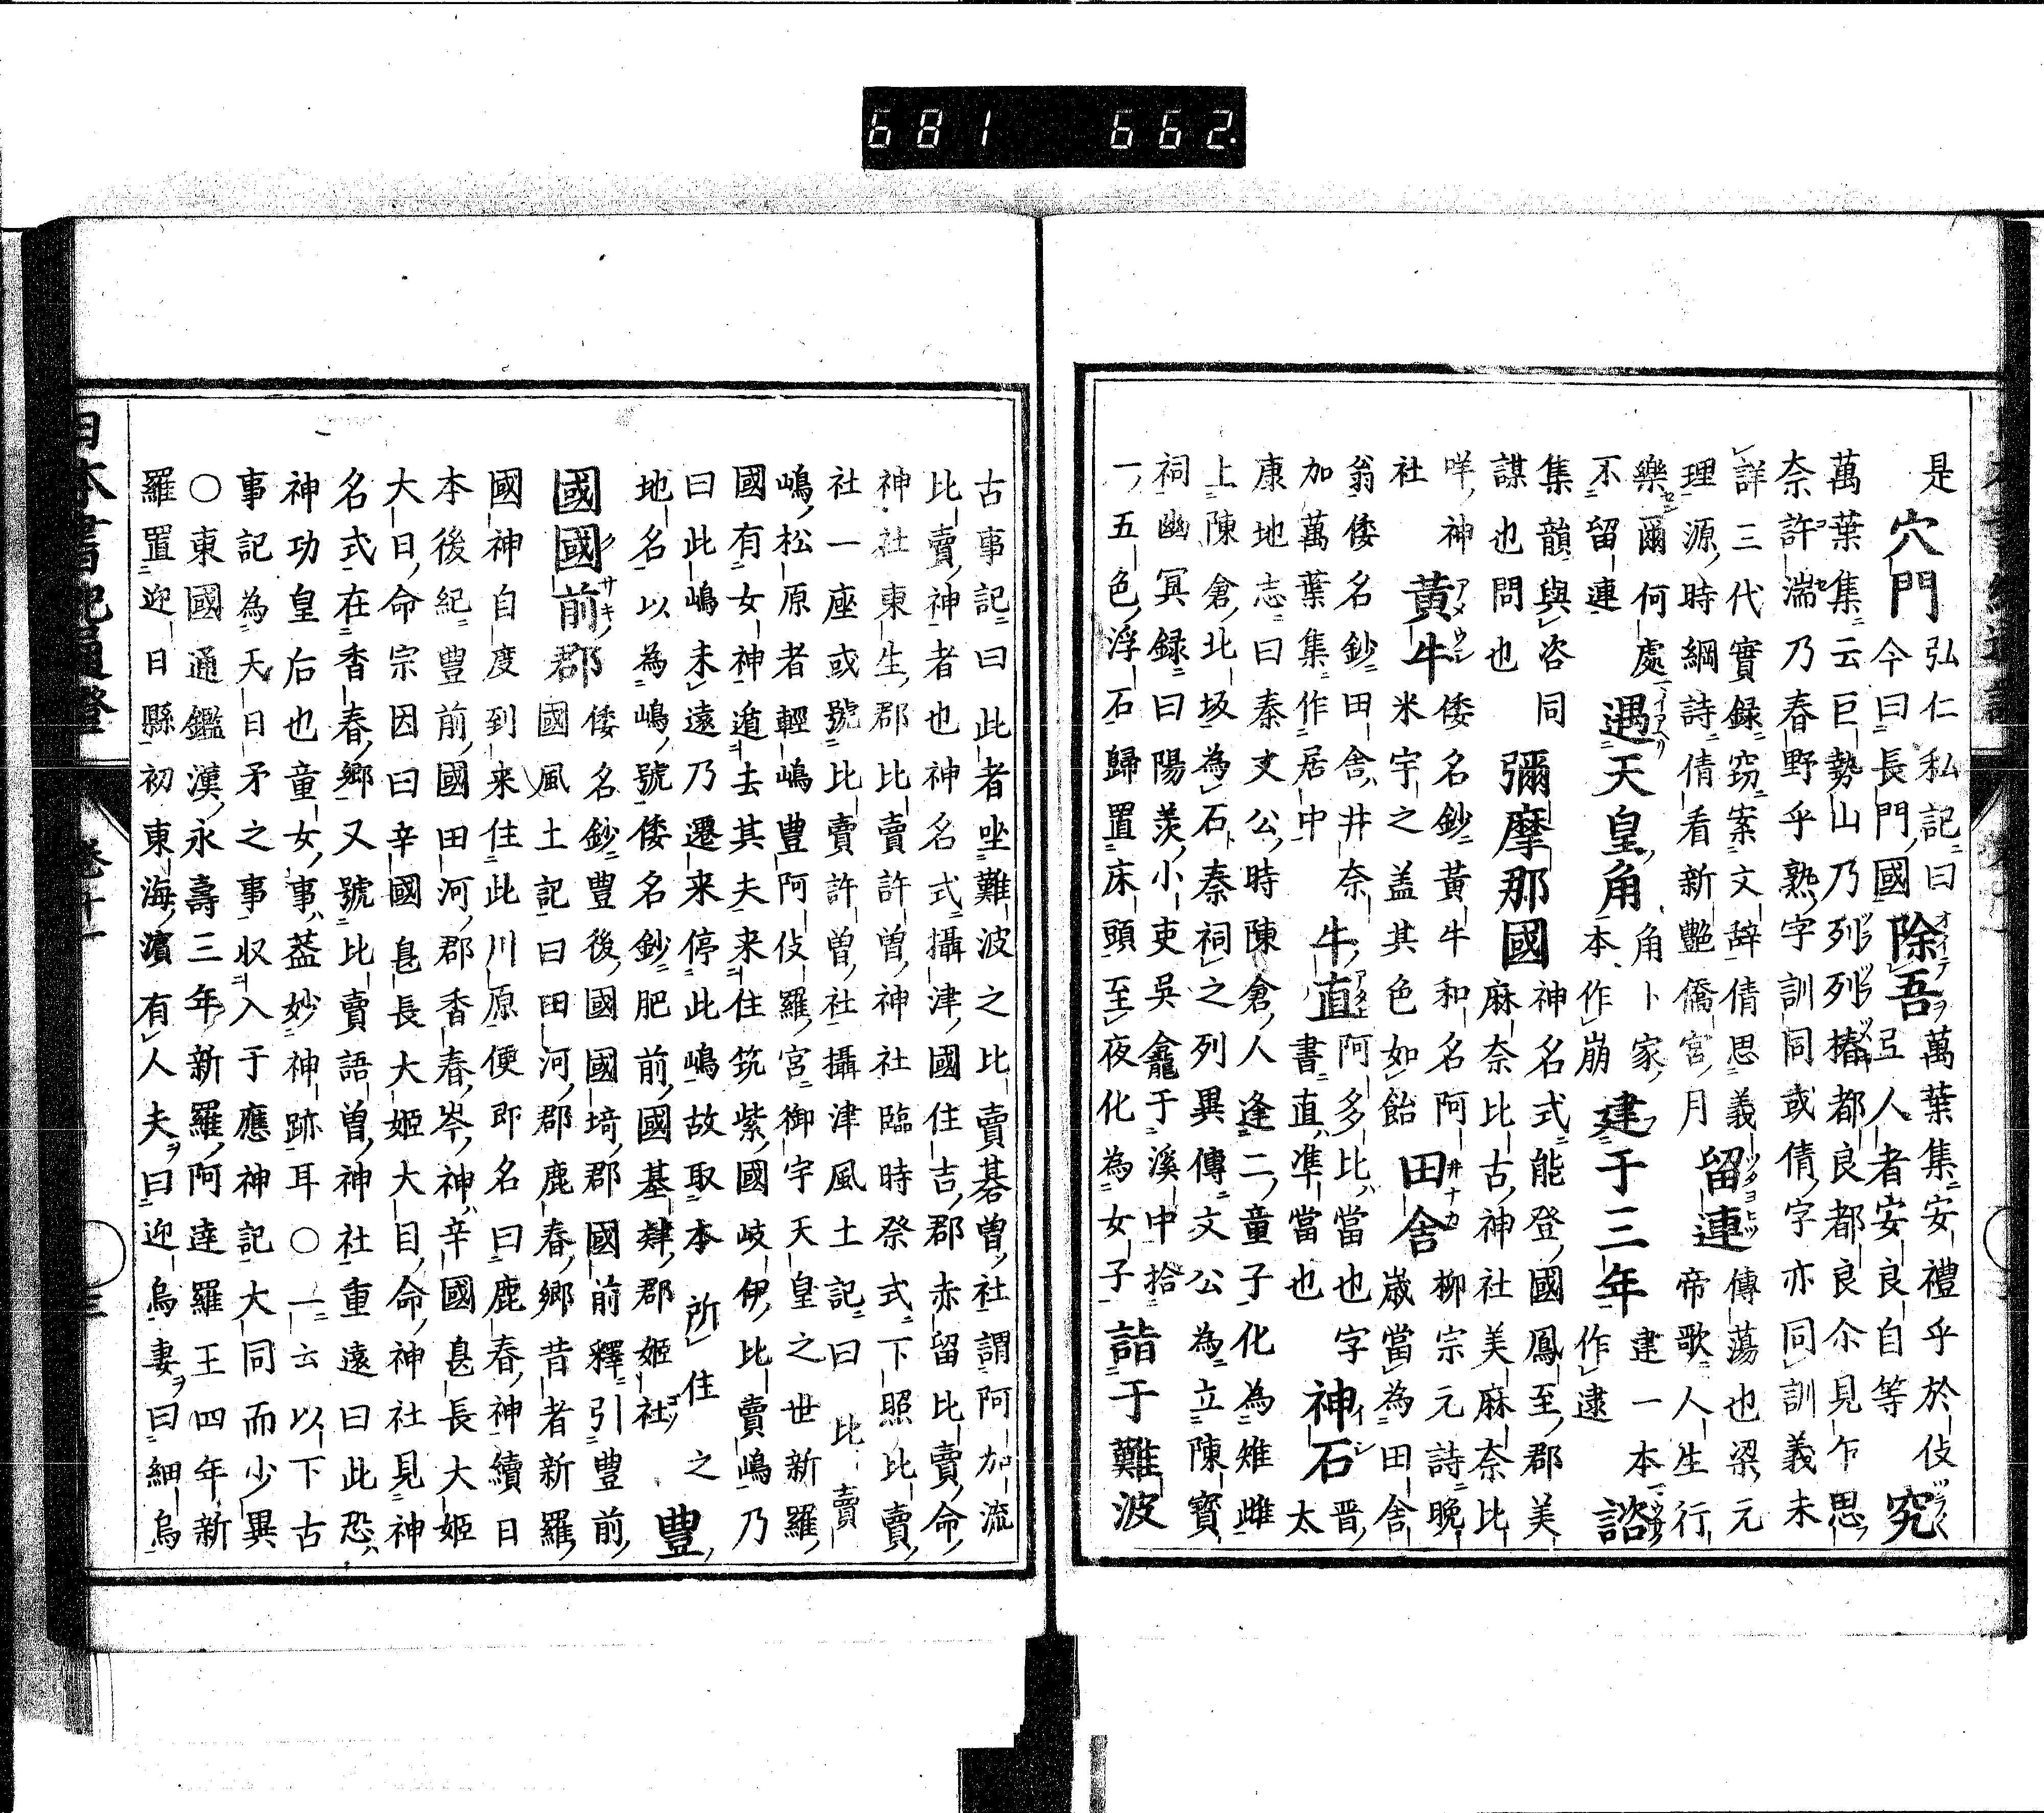 681 662
是
穴門
弘仁私記曰
今曰長門國
除吾
萬葉集安禮乎於伎
亞人者安良自等
究
萬葉集云巨勢山乃列列椿都良都良尓見乍思
奈許湍乃春野乎熟字訓同或倩字亦同訓義未
詳三代實録窃案文辞倩思義
理源時綱詩倩看新艷僑宮月
留連
傳蕩也梁元
帝歌人生行
樂爾何處
不留連
遇天皇角
角卜家
本作崩
建于三年
建一本
作逮
諮
集韻與咨同
謀也問也
彌摩那國
神名式能登國鳳至郡美
麻奈比古神社美麻奈比
咩神
社
黃牛
倭名鈔黃牛和名阿
米宇之盖其色如飴
田舍
柳宗元詩晩
歳當為田舍
翁倭名鈔田舍井奈
加萬葉集作居中
牛直
阿多比當也字
書直準當也
神石
晋
太
康地志曰秦文公時陳倉人逢二童子化為雉雌
上陳倉北坂為石秦祠之列異傳文公為立陳寳
祠幽冥録曰陽羨小吏吳龕于溪中拾
一五色浮石歸置床頭至夜化為女子
詣于難波
古事記曰此者坐難波之比賣碁曽社謂阿加流
比賣神者也神名式攝津國住吉郡赤留比賣命
神社東生郡比賣許曽神社臨時祭式下照比賣
社一座或號比賣許曽社攝津風土記曰比賣
嶋松原者輕嶋豊阿伎羅宮御宇天皇之世新羅
國有女神遁去其夫来住筑紫國岐伊比賣嶋乃
曰此嶋未遠乃遷来停此嶋故取本所住之
地名以為嶋號倭名鈔肥前國基肄郡姫社
豊
國國前郡
倭名鈔豊後國埼郡國前釋引豊前
國風土記曰田河郡鹿春鄉昔者新羅
國神自度到来住此川原便即名曰鹿春神續日
本後紀豊前國田河郡香春岑神辛國息長大姫
大目命宗因曰辛國息長大姫大目命神社見神
名式在香春鄉又號比賣語曽神社重遠曰此恐
神功皇后也童女事蓋妙神跡耳○一云以下古
事記為天日矛之事収入于應神記大同而少異
○東國通鑑漢永壽三年新羅阿逹羅王四年新
羅置迎日縣初東海濱有人夫曰迎烏妻曰細烏
日本書紀通證 卷十一 三